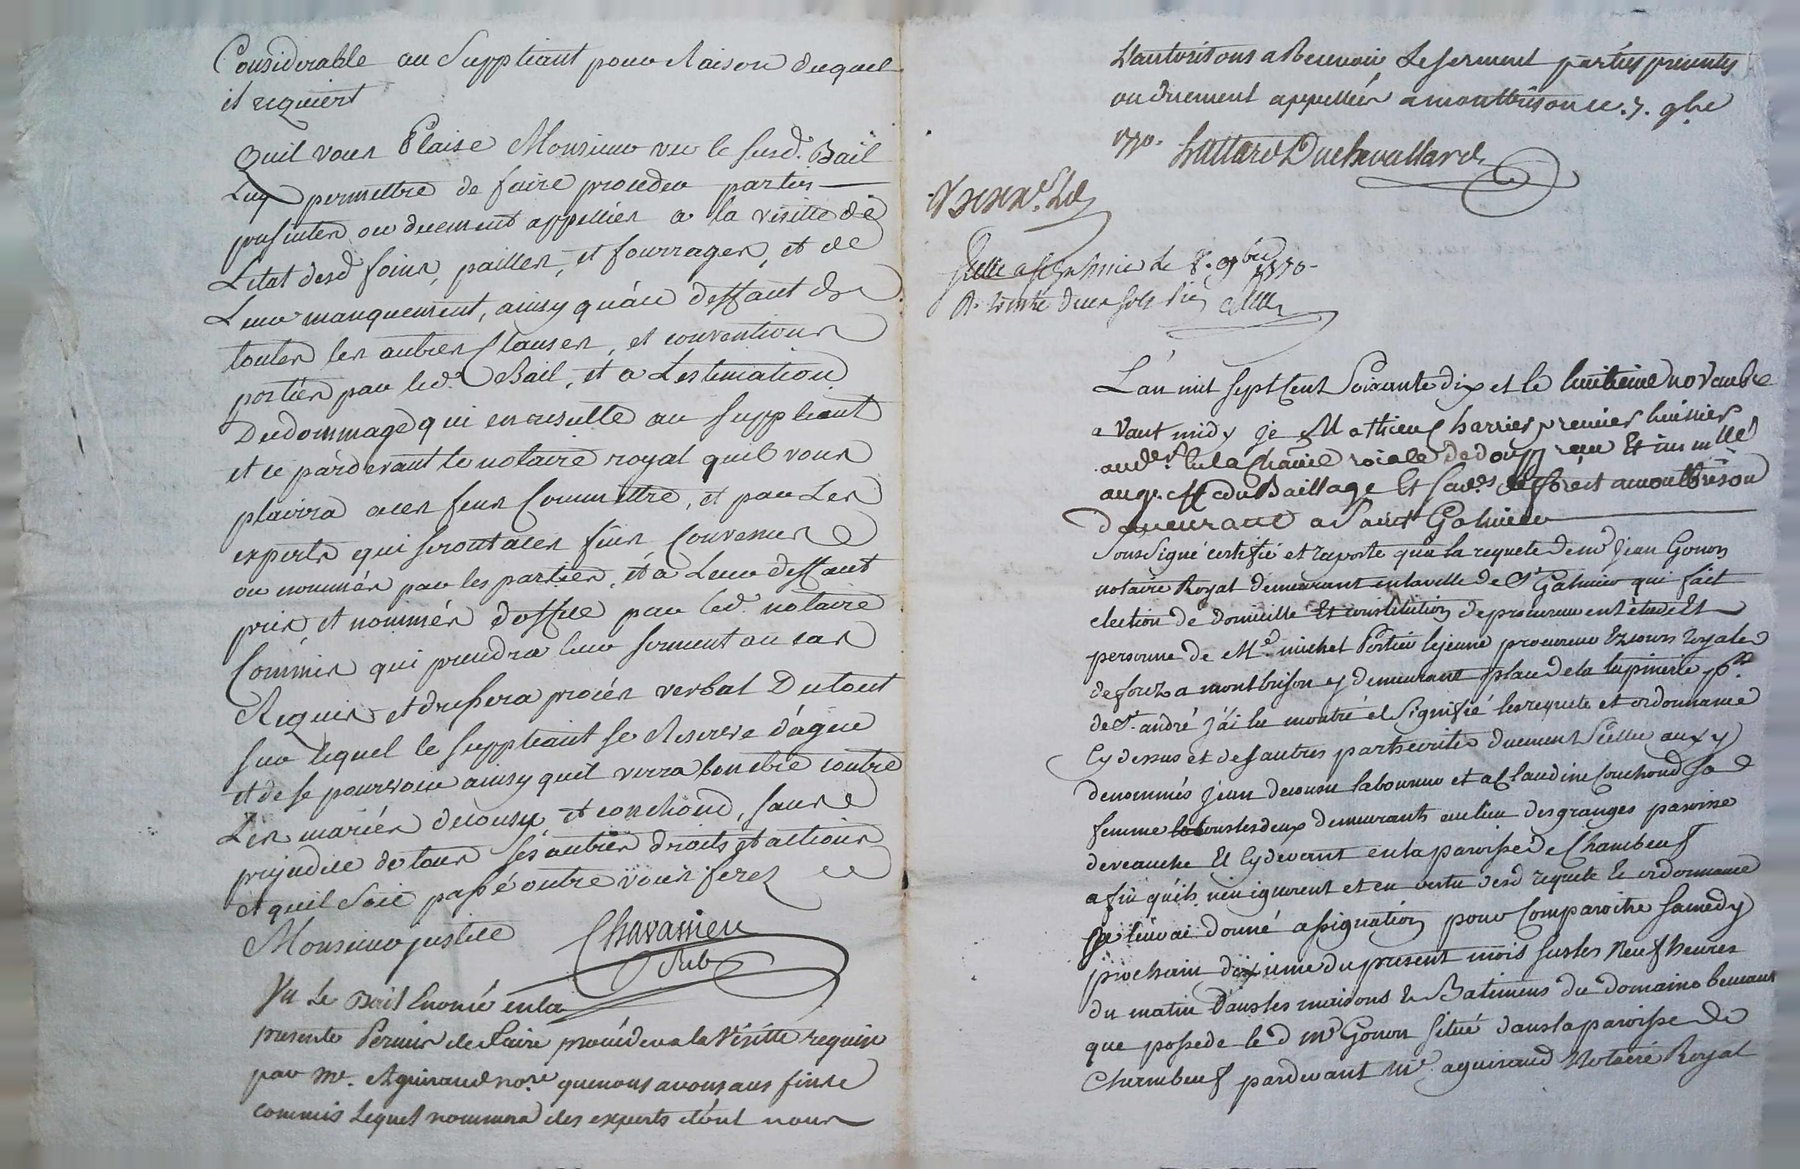 Considerable au Suppliant pour Raison duquel
il requiert
Quil vous Plaise Monsieur vu le susd. Bail
Luy permettre de faire proceder parties
presentes ou duement appellées a la visitte de
Letat desd foins, pailles, et fourrages, et de
Leur manquement, ainsy quau deffaut de
toutes les autres Clauses, et conventions
portées par led. Bail, et a Lestimation
Du dommage qui en resulte au suppliant
et ce pardevant le notaire royal quil vous
plaira a ces fins Commettre, et par Les
experts qui seront a ces fins Convenus
ou nommés par les parties, et a Leur deffaut
pris et nommés doffice par led. notaire
Commis qui prendra leur serment au cas
Requis et dressera procés verbal Du tout
sur lequel le suppliant se Reserve dagir
et de se pourvoir ainsy quil verra bon etre contre
Les mariés decousu et couchoud, sans
prejudice de tous ses autres droits et actions
et quil soit passé outre vous ferez
Monsieur justice Chavassieu
Sub
Vu Le Bail Enoncé en la
presente Permis de faire procéder a la Visitte requise
par me. Aguiraud nore. que nous avons aux fins de
commis Lequel nommera des experts dont nous
L'autorisons a Recevoir Le serment parties presentes
ou duement appellées a montbrison ce. 7. 9bre
1770. Lattard Duchevallard
Scelle a St galmier le 8. 9bre 1770.
R. trente deux sols six
L'an mil sept Cent Soixante dix et le huitieme novembre
avant midy je Mathieu Charries premier huissier
aud. en la Chatie roiale de donzy reçu Et immllé
au gr. eff. du Baillage Et Senes. de forest a montbrison
demeurant a Saint Galmier
Soussigné certifié et raporte qua la requete de mr jean Gonon
notaire Royal demeurant en la ville de St Galmier qui fait
election de domicille Et constitution de procureur en l'etude Et
personne de Me. michel Portier le jeune procureur Ez cours Royales
de forez a montbrison y demeurant place de la lapinerie psse
de St. andré j'ai lu montré et Signifié les requete et ordonnance
Cy dessus et des autres parts ecrites duement scellée aux y
denommés jean decousu laboureur et a Claudine Couchoud sa
femme tous les deux demeurants au lieu des granges paroisse
de veauche Et Cy devant en la paroisse de Chambeuf
afin qu'ils nen ignorent et en vertu desd requete Et ordonnance
je leur ai donné assignation pour Comparoitre samedy
prochain dixieme du present mois sur les Neuf heures
du matin Dans les maisons & Batimens du domaine
que possede led mr Gonon Situé dans la paroisse de
Chambeuf pardevant me. aguiraud Notaire Royal